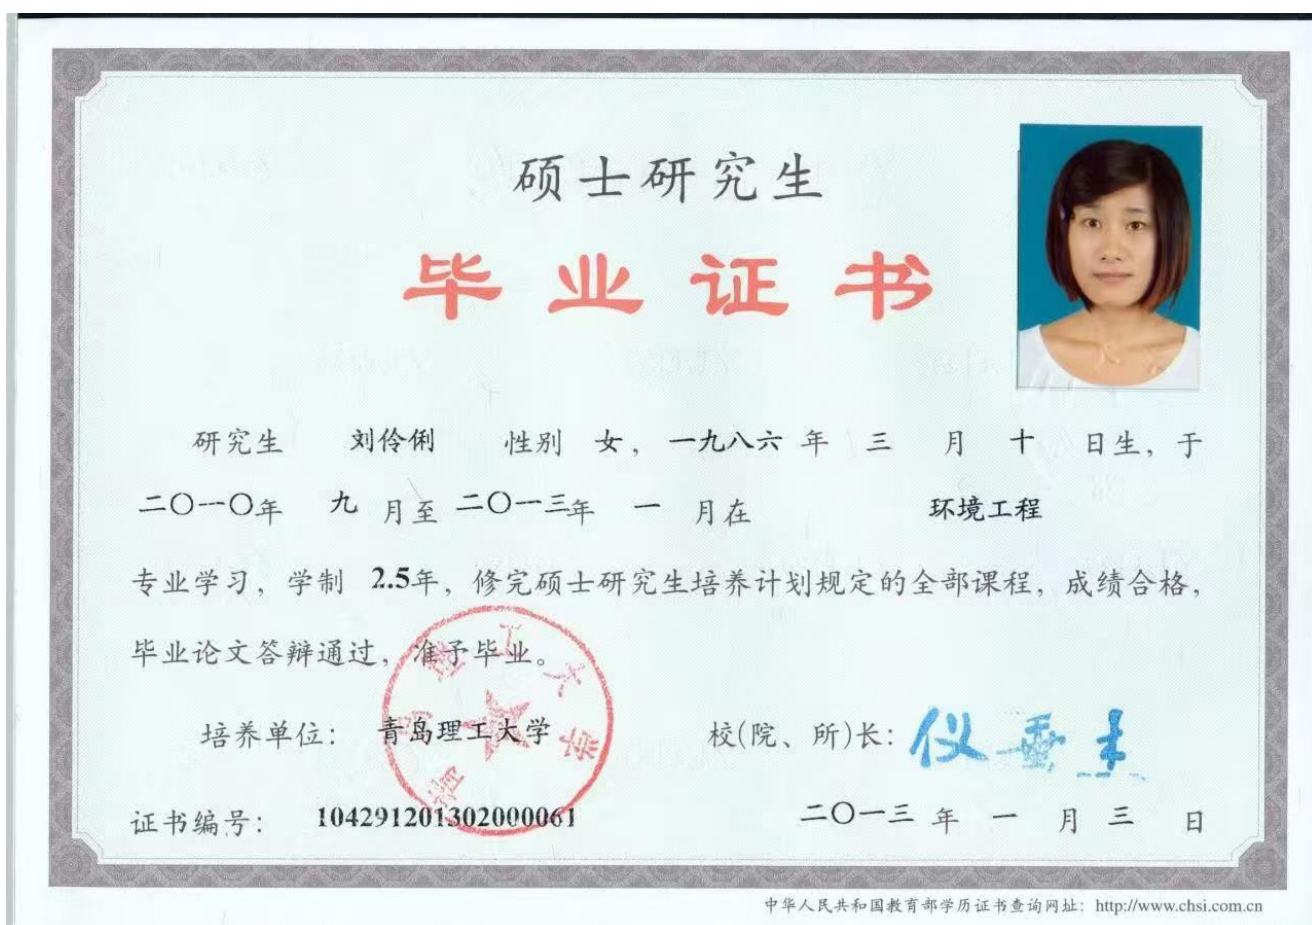 硕士研究生
毕业证书
研究生 刘伶俐 性别 女，一九八六 年 三 月 十 日生，于
二〇一〇年 九 月至 二〇一三年 一 月在 环境工程
专业学习，学制 2.5年，修完硕士研究生培养计划规定的全部课程，成绩合格，
毕业论文答辩通过，准予毕业。
青岛理工大学
培养单位：青岛理工大学 校(院、所)长：仪垂杰
证书编号：104291201302000061 二〇一三 年 一 月 三 日
中华人民共和国教育部学历证书查询网址：http://www.chsi.com.cn